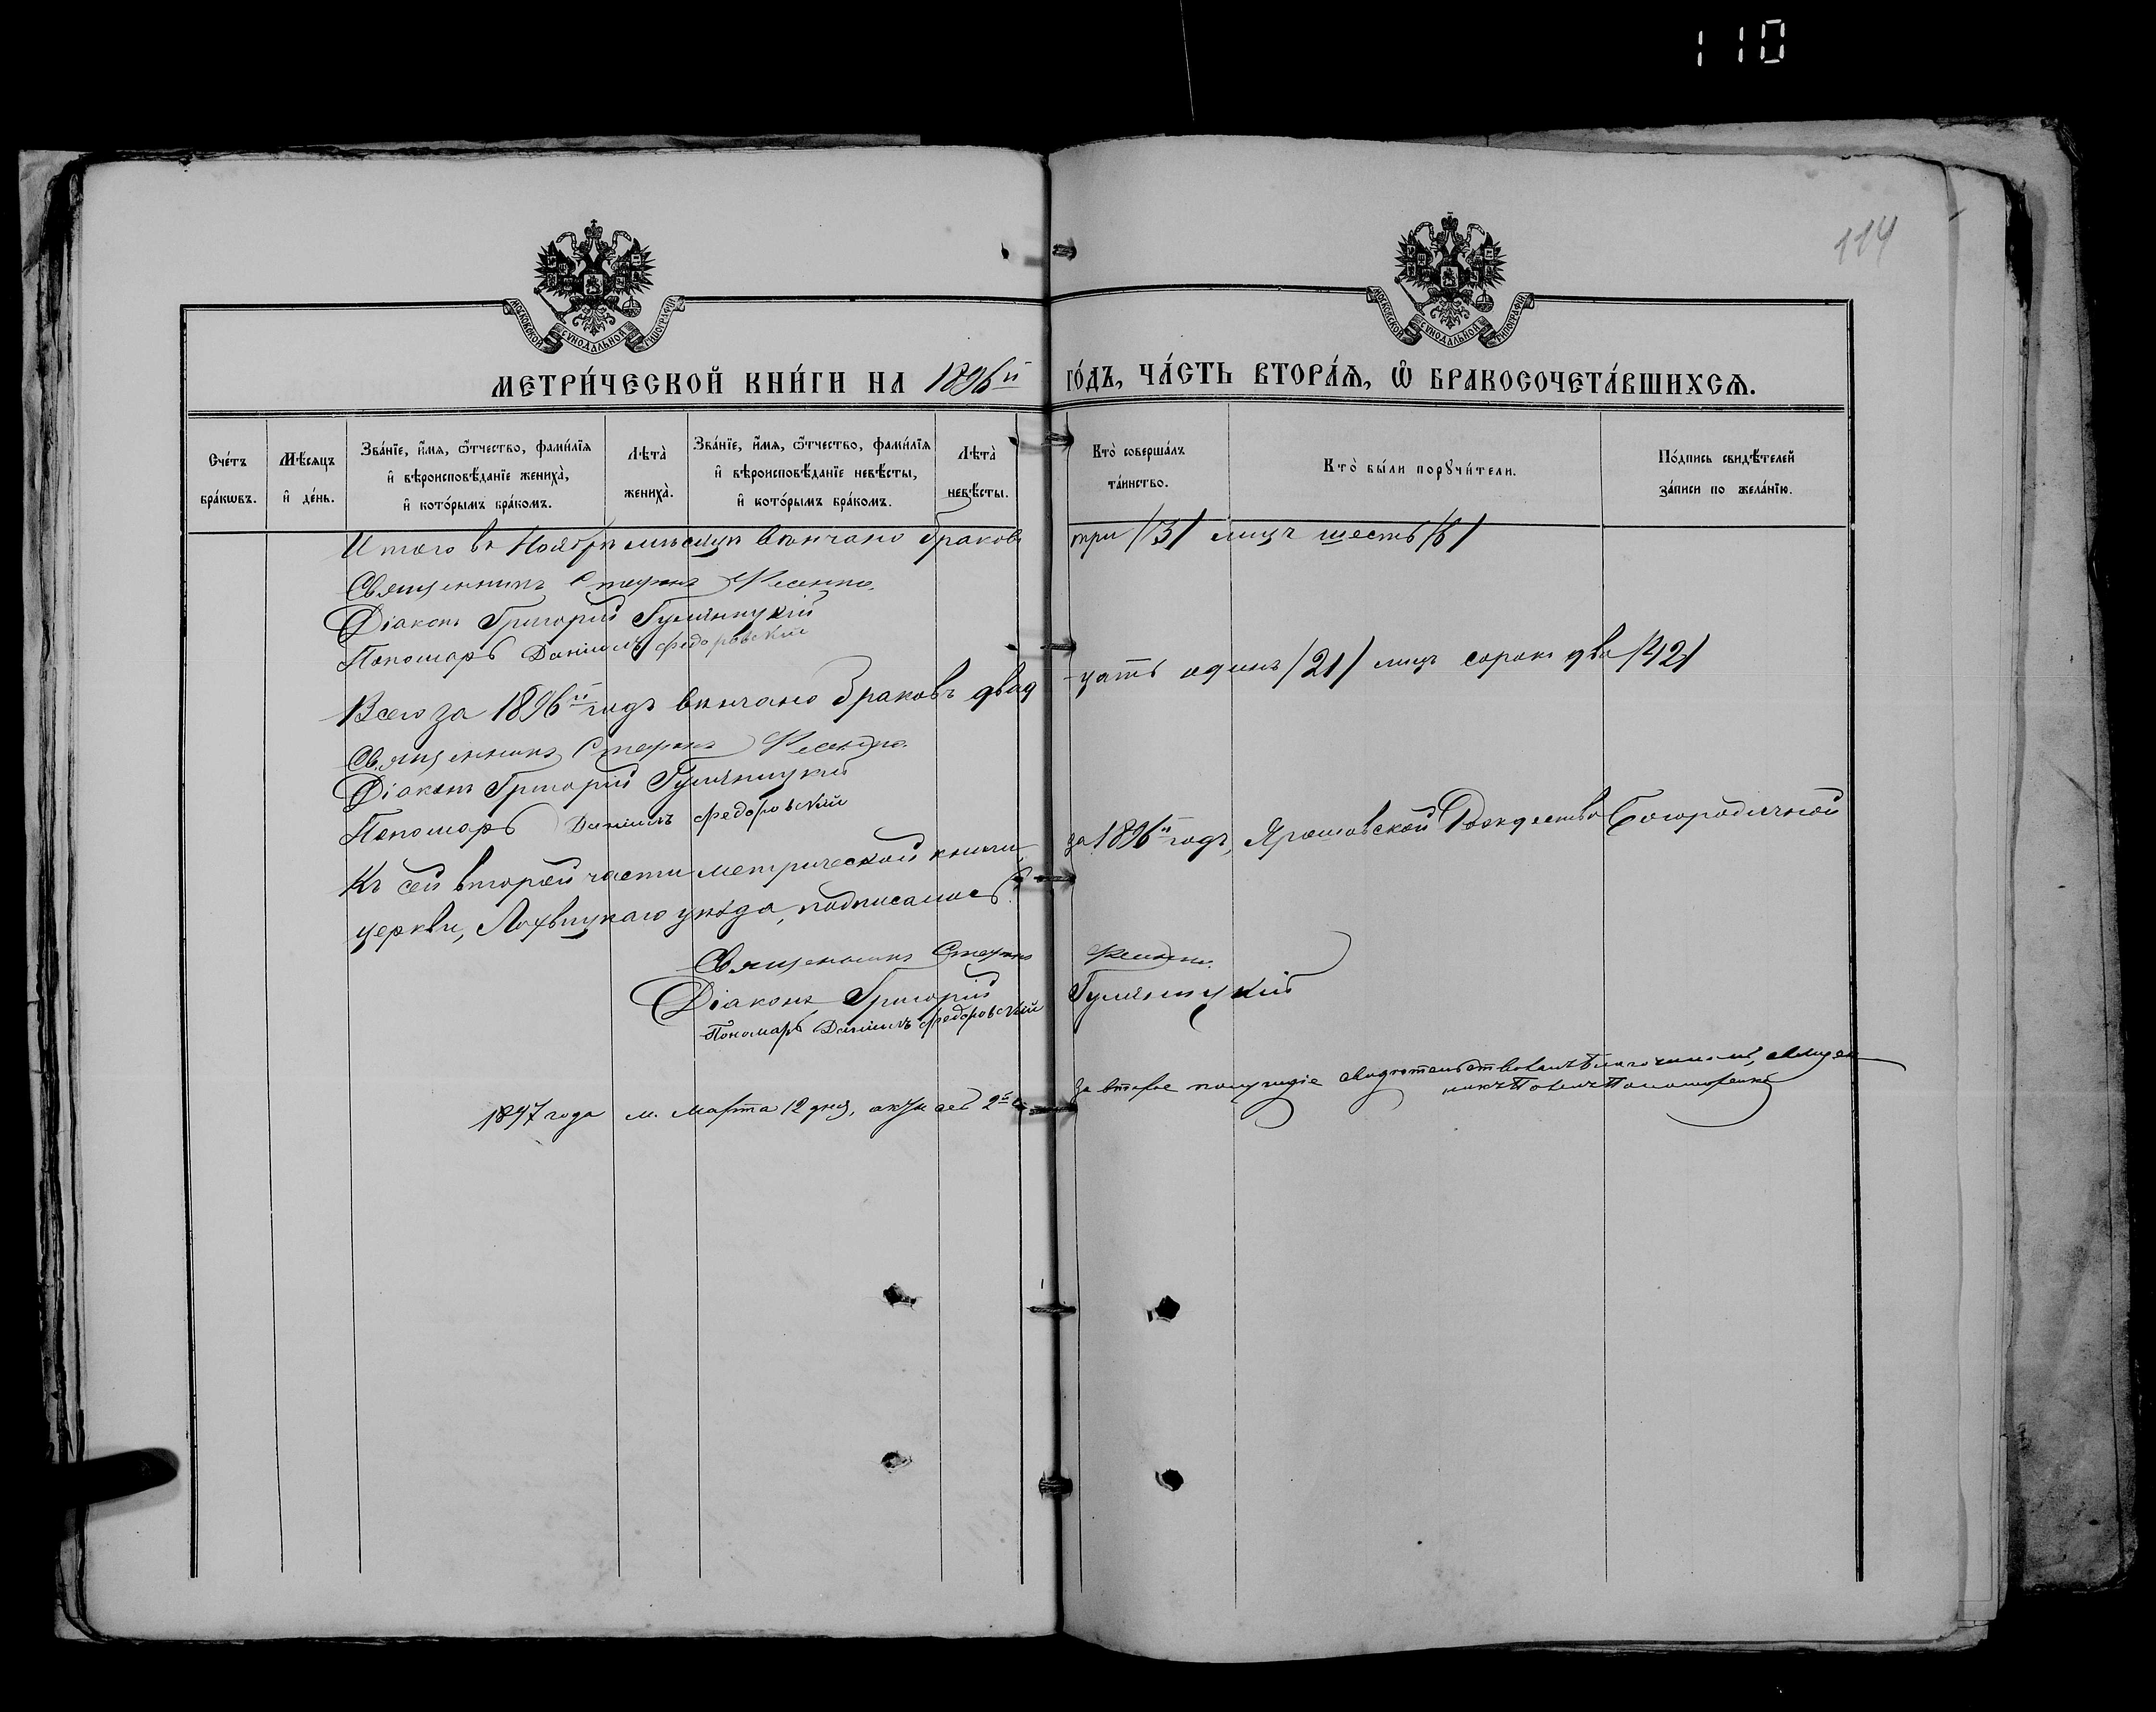 110
114
МОСКОВСКОЙ СѴНОДАЛЬНОЙ ТИПОГРАФІИ
МОСКОВСКОЙ СѴНОДАЛЬНОЙ ТИПОГРАФІИ
МЕТРИ́ЧЕСКОЙ КНИ́ГИ НА 1896й ГО́ДЪ, ЧА́СТЬ ВТОРА́Ѧ, Ѽ БРАКОСОЧЕТА́ВШИХСѦ.
Сче́тъ бра́кѡвъ.
Мѣ́сяцъ и҆ де́нь.
Зва́нїе, и҆́мя, ѻ҆́тчество, фами́лїя и҆ вѣроисповѣ́данїе жениха̀, и҆ кото́рымъ бра́комъ.
Лѣта̀ жениха̀.
Зва́нїе, и҆́мя, ѻ҆́тчество, фами́лїя и҆ вѣроисповѣ́данїе невѣ́сты, и҆ кото́рымъ бра́комъ.
Лѣта̀ невѣ́сты.
Кто̀ соверша́лъ та́инство.
Кто̀ бы́ли порꙋчи́тели.
По́дпись свидѣ́телей за́писи по жела́нїю.
Итого въ Ноябрѣ мѣсяцѣ вѣнчано браковъ три /3/ лицъ шесть /6/
Священникъ Стефанъ
Діаконъ Григорій
Пономарь Даніилъ Федоровскій
Всего за 1896й годъ вѣнчано браковъ двадцать одинъ /21/ лицъ сорокъ два /42/
Священникъ Стефанъ
Діаконъ Григорій
Пономарь Даніилъ Федоровскій
Къ сей второй части метрической книги, за 1896й годъ, Ярошовской Рождество Богородичной
церкви, Лохвицкаго уѣзда, подписались:
Священникъ Стефанъ
Діаконъ Григорій
Пономарь Даніилъ Федоровскій
1897 года м. Марта 12 дня, за второе полугодіе свидѣтельствовалъ Благочинный, Священникъ Павелъ Пономаренко